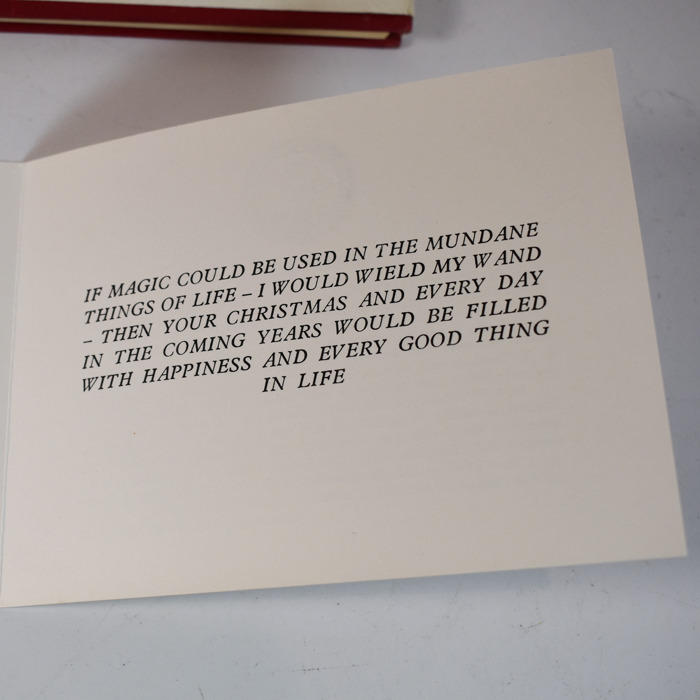 IF MAGIC COULD BE USED IN THE MUNDANE
THINGS OF LIFE – I WOULD WIELD MY WAND
– THEN YOUR CHRISTMAS AND EVERY DAY
IN THE COMING YEARS WOULD BE FILLED
WITH HAPPINESS AND EVERY GOOD THING
IN LIFE